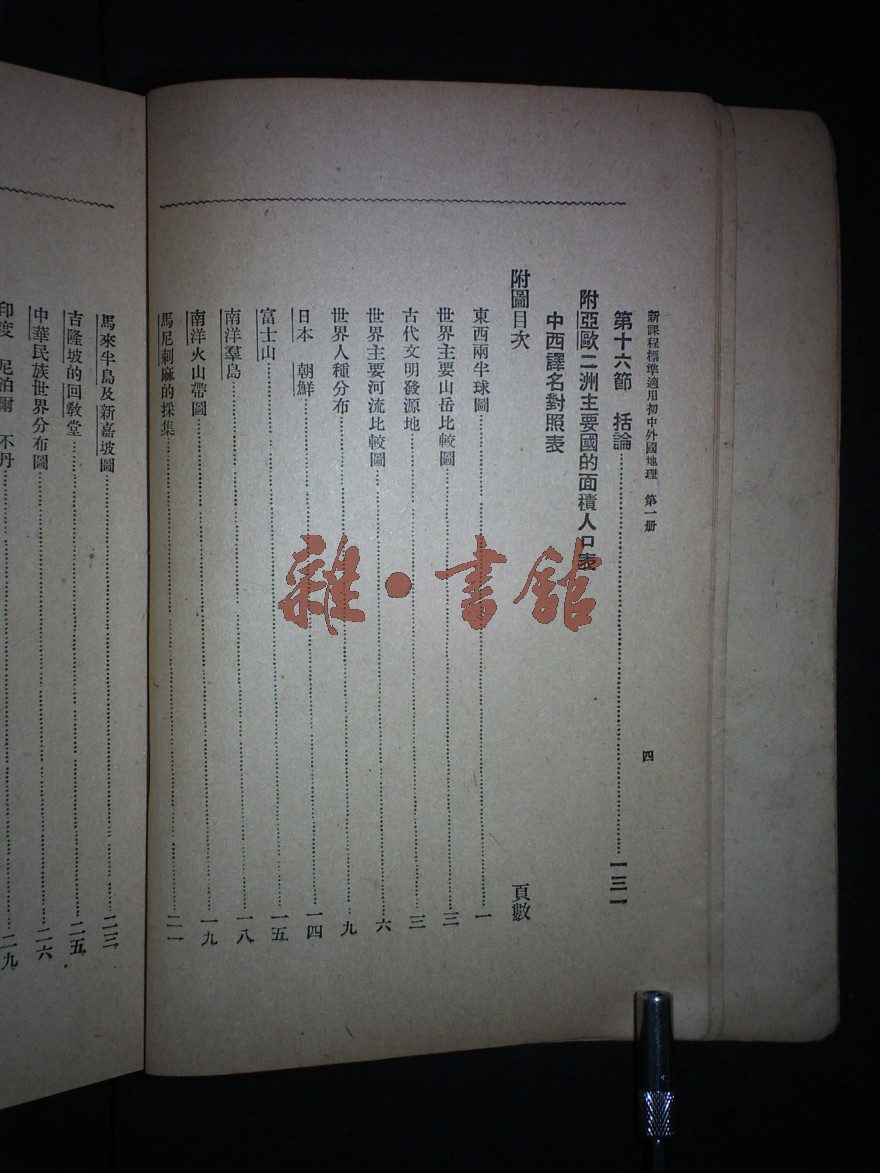 新課程標準適用初中外國地理　第一册
四
第十六節　括論……一三一
附亞歐二洲主要國的面積人口表
中西譯名對照表
附圖目次　頁數
東西兩半球圖……一
世界主要山岳比較圖……三
古代文明發源地……三
世界主要河流比較圖……六
世界人種分布……九
日本　朝鮮……一四
富士山……一五
南洋羣島……一八
南洋火山帶圖……一九
馬尼剌麻的採集……二一
馬來半島及新嘉坡圖……二三
吉隆坡的回敎堂……二五
中華民族世界分布圖……二六
印度　尼泊爾　不丹……二九
雜·書館